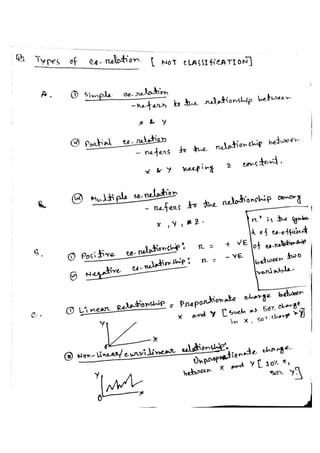 Types of co-relation [NOT CLASSIFICATION]
A. (i) Simple co-relation
- refers to the relationship between
x & y
(ii) Partial co-relation
- refers to the relationship between
x & y keeping z constant.
(iii) Multiple co-relation
- refers to the relationship among
x, y, & z.
B. (i) Positive co-relationship: r = + VE
(ii) Negative co-relationship: r = - VE
'r' is the symbol
of co-efficient
of co-relationship
between two
variable.
C. (i) Linear Relationship = Proportionate change between
x and y [such as 50% change
in x, 50% change in y]
Y
O
X
(ii) Non-linear/curvilinear relationship:
Unproportionate change
between x and y [10% x,
50% y]
Y
O
X